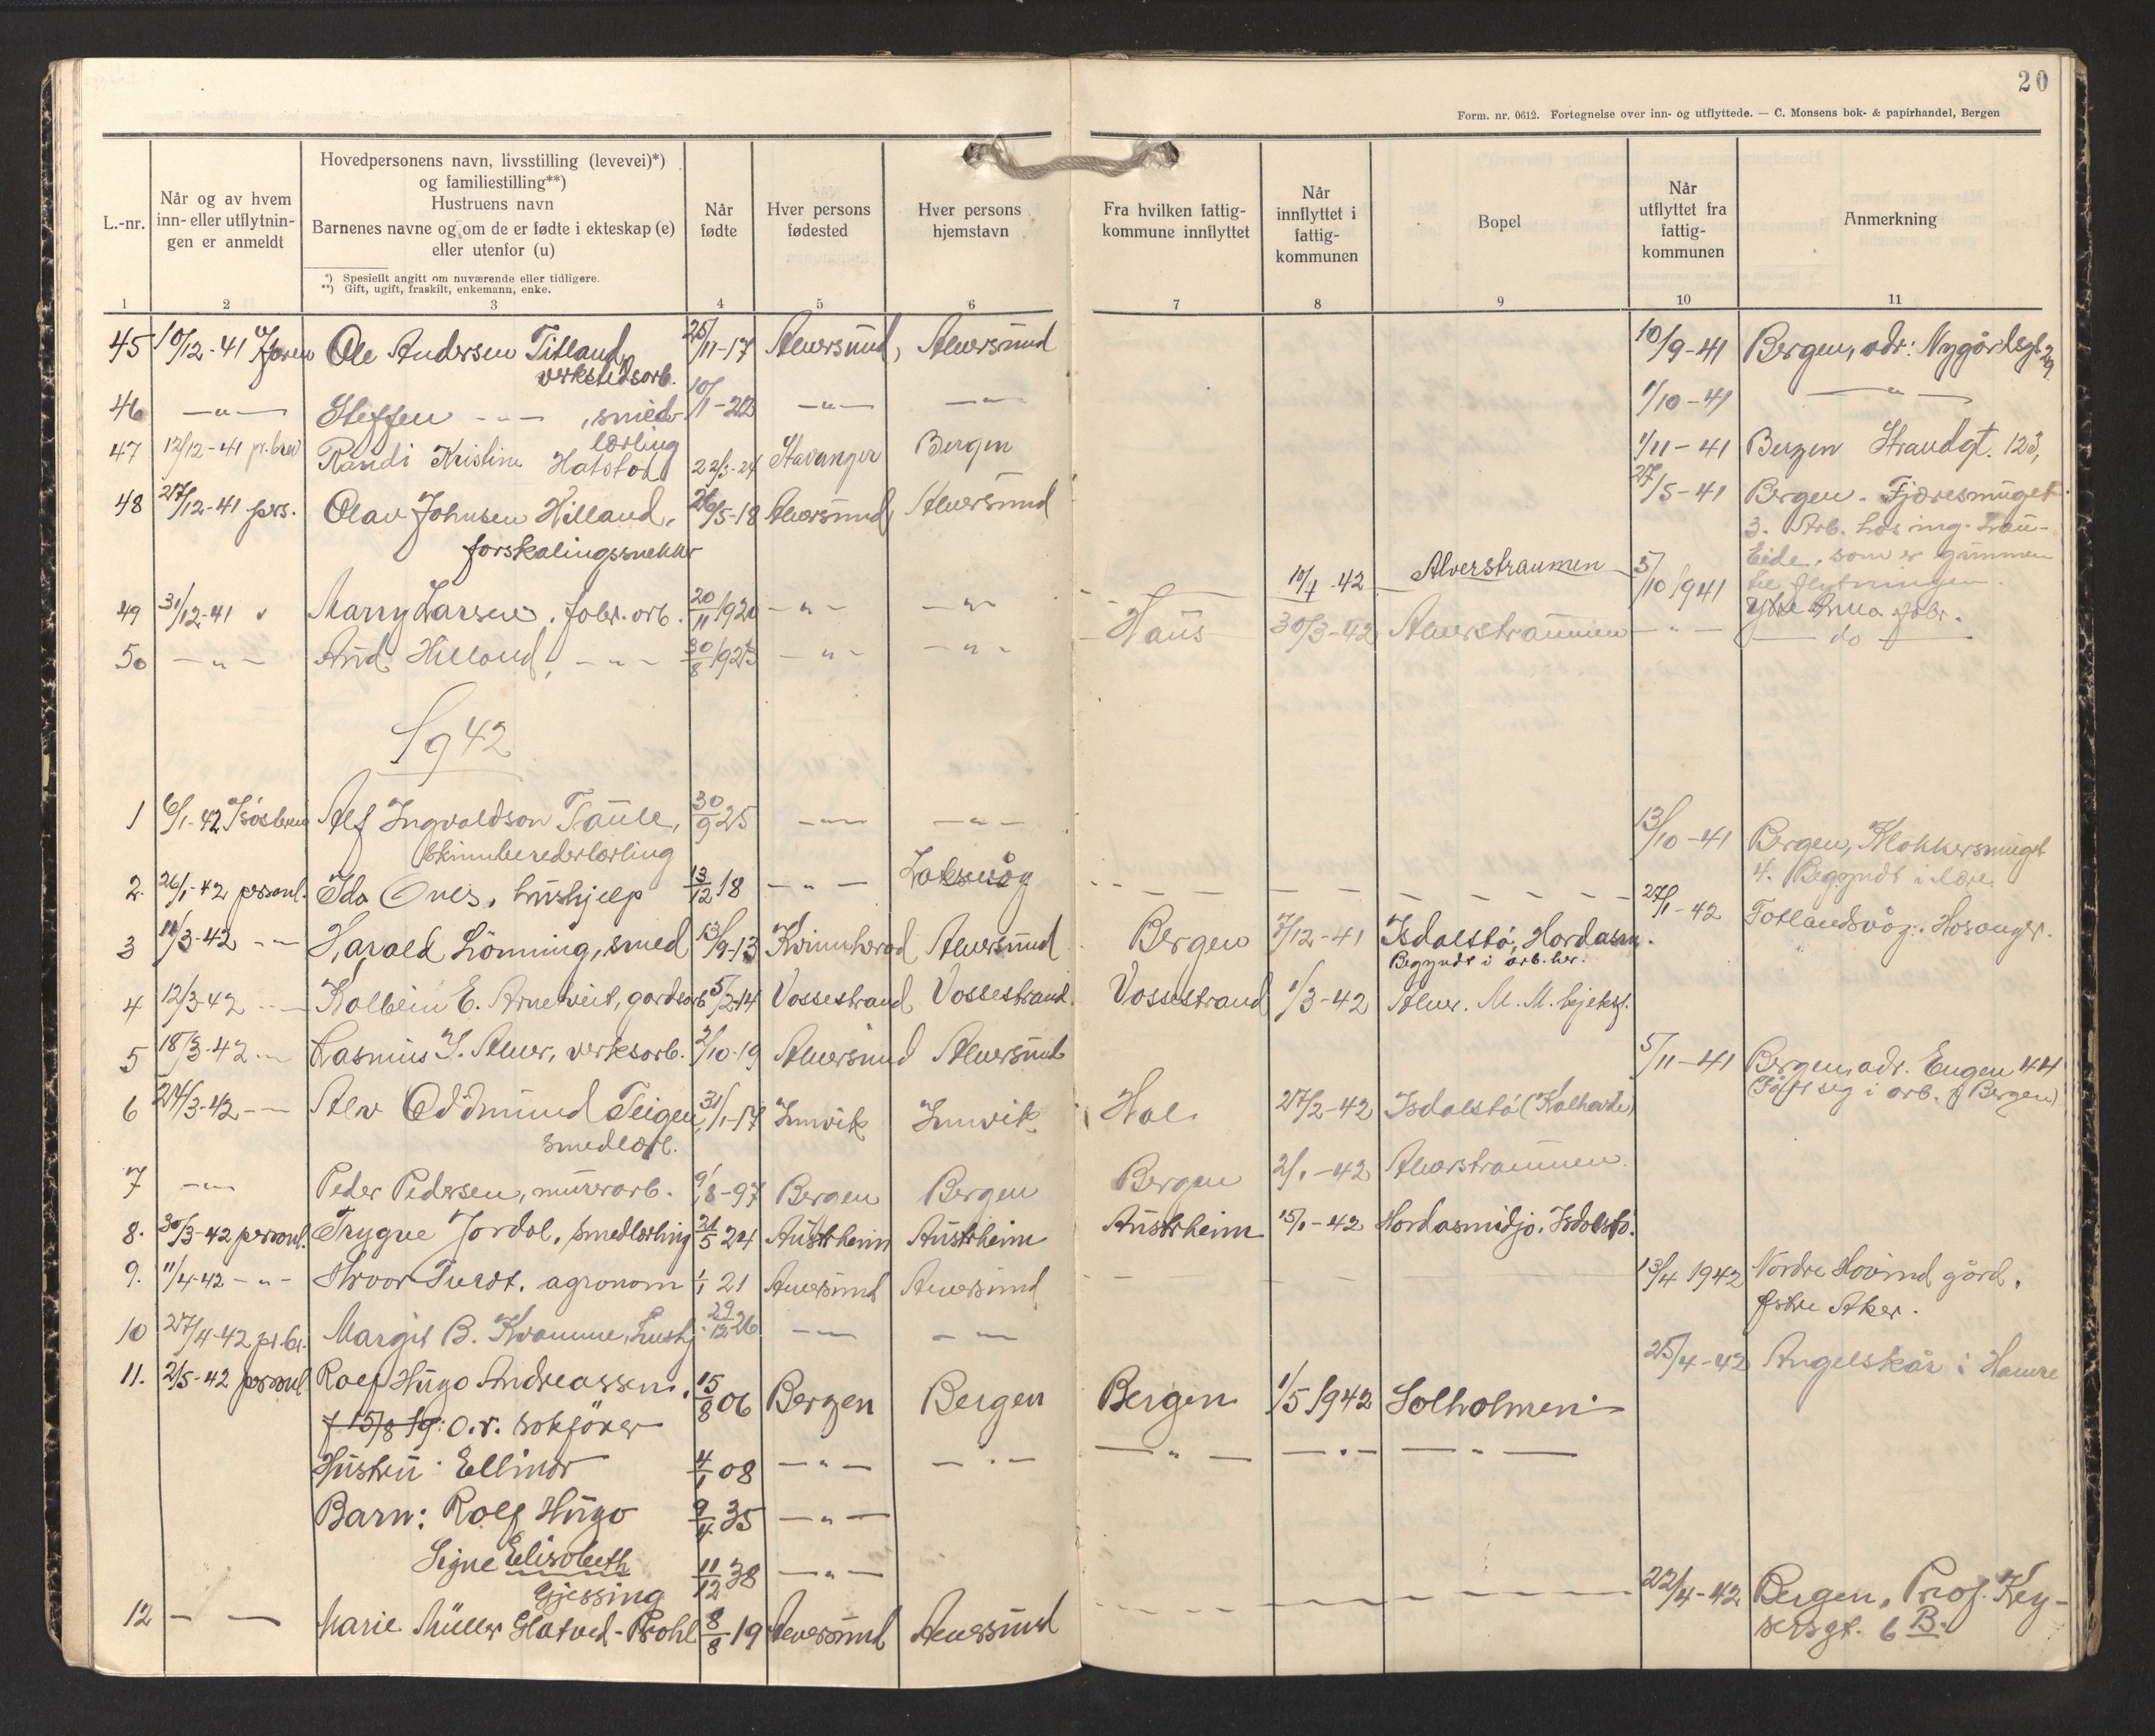 20
Form. nr. 0612. Fortegnelse over inn- og utflyttede. — C. Monsens bok- & papirhandel, Bergen
L.-nr.
Når og av hvem
inn- eller utflytnin-
gen er anmeldt
Hovedpersonens navn, livsstilling (levevei)*)
og familiestilling**)
Hustruens navn
Barnenes navne og om de er fødte i ekteskap (e)
eller utenfor (u)
*) Spesiellt angitt om nuværende eller tidligere.
**) Gift, ugift, fraskilt, enkemann, enke.
Når
fødte
Hver persons
fødested
Hver persons
hjemstavn
Fra hvilken fattig-
kommune innflyttet
Når
innflyttet i
fattig-
kommunen
Bopel
Når
utflyttet fra
fattig-
kommunen
Anmerkning
1 2 3 4 5 6 7 8 9 10 11
45 10/12-41 Ole Andersen Titland, 25/11-17 Alversund, Alversund 10/9-41 Bergen, adr: Nygårdsgt. 29
verkstedsarb.
46 —"— Steffen —"—, smed- 10/1-22 —"— —"— 1/10-41 —"—
lærling
47 12/12-41 pr. brev Randi Kristine Hatstad 22/3-24 Stavanger Bergen 1/11-41 Bergen Strandgt. 123,
48 27/12-41 pers. Olav Johnsen Hilland, 26/5-18 Alversund Alversund 27/5-41 Bergen. Fjæresmuget
forskalingssnekker 3. Arb. hos ing. Lau-
Eide, som er
til flytningen.
49 31/12-41 " Marry Larsen. fabr. arb. 20/11 1920 —"— —"— 10/4-42 Alverstraumen 5/10 1941 Ytre Arna fabr.
50 —"— Aud Hilland, —"— 30/8 1923 —"— —"— Haus 30/3-42 Alverstraumen —"— do
1942
1 6/1-42 Alf Ingvaldson Taule, 30/9 25 —"— —"— 13/10-41 Bergen, Klokkersmuget
skinnberederlærling 4. Begyndt i lære.
2. 26/1-42 personl. Ida Ones, hushjelp 13/12 18 —"— Laksevåg 27/1-42 Fotlandsvåg. Hosanger.
3 11/3-42 —"— Harald Lönning, smed 13/9-13 Kvinnherad Alversund Bergen 7/12-41 Isdalstø, Hordasm.
Begyndt i arb. her.
4 12/3-42 —"— Kolbein E. Arnetveit, gardsarb 5/2-14 Vossestrand Vossestrand. Vossestrand 1/3-42 Alver. M. M.
5 18/3-42 —"— Rasmus I. Alver, verksarb. 2/10-19 Alversund Alversund 5/11-41 Bergen adr. Engen 44
(Fått seg i arb. i Bergen)
6 24/3-42 —"— Alv Oddmund Teigen, 31/1-17 Innvik Innvik Hol 27/2-42 Isdalstø
smedlærl.
7 —"— Peder Pedersen, murerarb. 9/8-97 Bergen Bergen Bergen 2/1-42 Alverstraumen
8. 30/3-42 personl. Trygve Jordal, smedlærling 21/5 24 Austrheim Austrheim Austrheim 15/1-42 Hordasmidjo. Isdalstø.
9. 11/4-42 —"— Havor Tveidt. agronom 1/1 21 Alversund Alversund 13/4 1942 Nordre Hovind gård.
Østre Aker.
10 27/4-42 pr. br. Margit B. Kvamme, hushj. 29/12 26 —"— —"— 25/4-42 Angelskår i Hamre
11. 2/5-42 personl. Rolf Hugo Andreassen, 15/8 06 Bergen Bergen Bergen 1/5 1942 Solholmen
f 15/8 19. o.r. sakfører
Hustru: Ellinor 4/1 08 —"— —"— —"— —"— —"—
Barn: Rolf Hugo 9/4 35 —"—
Signe Elisabeth 11/12 38 —"—
Gjessing
12 —"— Marie Müller Hatved-Prohl 8/8-19 Alversund Alversund 22/4-42 Bergen, Prof. Key-
sersgt. 6 B.